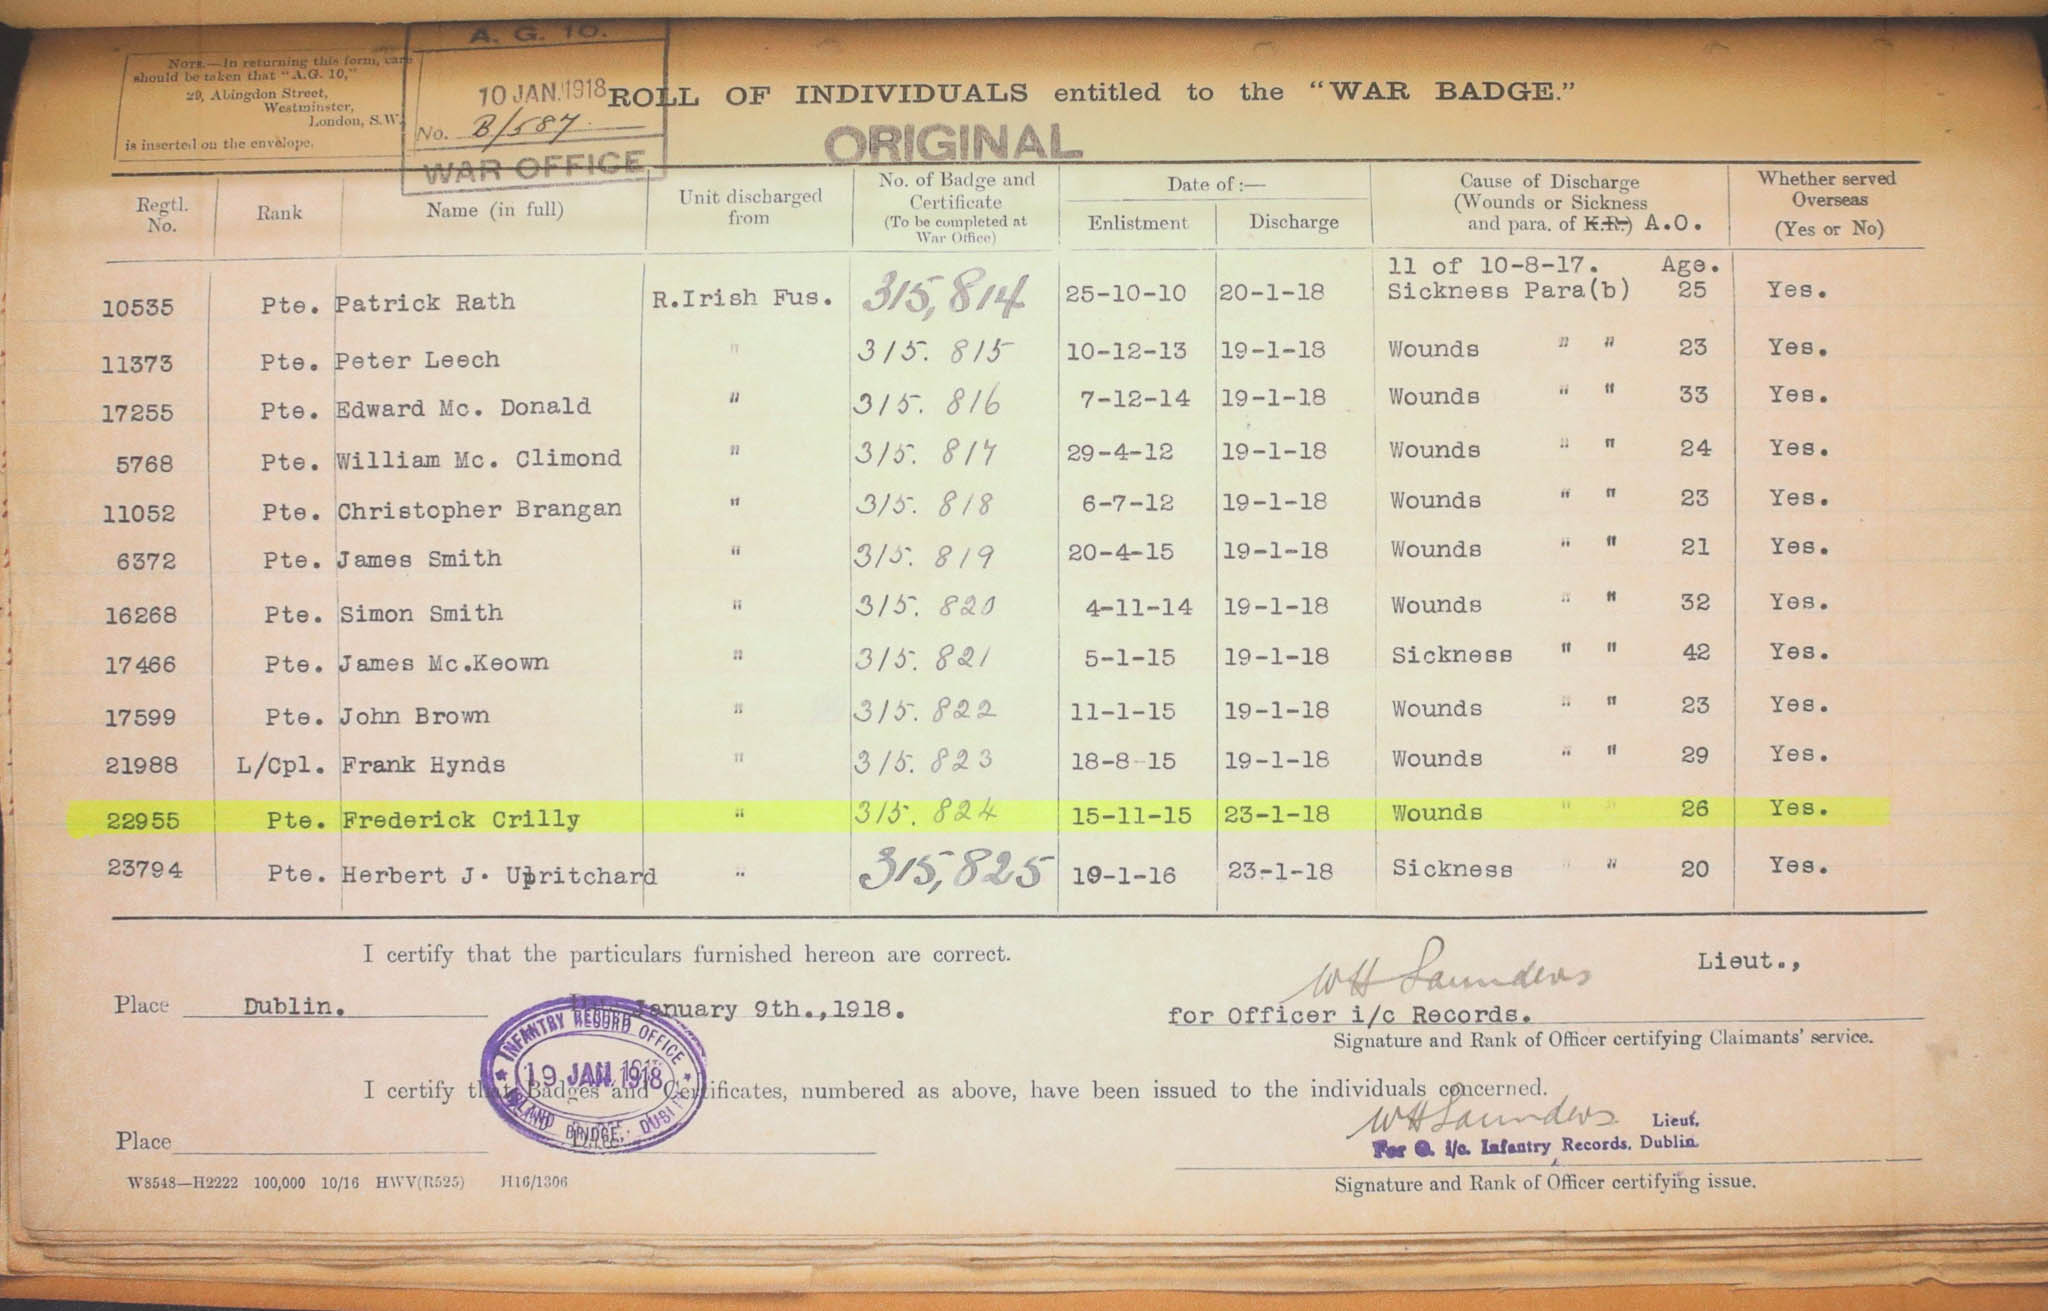 A. G. 10.
NOTE.—In returning this form, care
should be taken that "A.G. 10,"
29, Abingdon Street,
Westminster,
London, S.W.,
is inserted on the envelope.
10 JAN. 1918
No. B/587.
WAR OFFICE
ROLL OF INDIVIDUALS entitled to the "WAR BADGE."
ORIGINAL
Regtl. No. Rank Name (in full) Unit discharged from No. of Badge and Certificate (To be completed at War Office) Date of :— Enlistment Discharge Cause of Discharge (Wounds or Sickness and para. of K.R.) A.O. Whether served Overseas (Yes or No)
11 of 10-8-17. Age.
10535 Pte. Patrick Rath R.Irish Fus. 315,814 25-10-10 20-1-18 Sickness Para(b) 25 Yes.
11373 Pte. Peter Leech " 315.815 10-12-13 19-1-18 Wounds " " 23 Yes.
17255 Pte. Edward Mc. Donald " 315.816 7-12-14 19-1-18 Wounds " " 33 Yes.
5768 Pte. William Mc. Climond " 315.817 29-4-12 19-1-18 Wounds " " 24 Yes.
11052 Pte. Christopher Brangan " 315.818 6-7-12 19-1-18 Wounds " " 23 Yes.
6372 Pte. James Smith " 315.819 20-4-15 19-1-18 Wounds " " 21 Yes.
16268 Pte. Simon Smith " 315.820 4-11-14 19-1-18 Wounds " " 32 Yes.
17466 Pte. James Mc.Keown " 315.821 5-1-15 19-1-18 Sickness " " 42 Yes.
17599 Pte. John Brown " 315.822 11-1-15 19-1-18 Wounds " " 23 Yes.
21988 L/Cpl. Frank Hynds " 315.823 18-8-15 19-1-18 Wounds " " 29 Yes.
22955 Pte. Frederick Crilly " 315.824 15-11-15 23-1-18 Wounds " " 26 Yes.
23794 Pte. Herbert J. Upritchard " 315,825 19-1-16 23-1-18 Sickness " " 20 Yes.
I certify that the particulars furnished hereon are correct.
WH Saunders Lieut.,
Place Dublin. January 9th.,1918.
for Officer i/c Records.
Signature and Rank of Officer certifying Claimants' service.
INFANTRY RECORD OFFICE
19 JAN. 1918
ISLAND BRIDGE, DUBLIN
I certify that Badges and Certificates, numbered as above, have been issued to the individuals concerned.
WH Saunders Lieut.
For O. i/c. Infantry Records, Dublin.
Place Date
Signature and Rank of Officer certifying issue.
W8548—H2222 100,000 10/16 HWV(R525) H16/1306